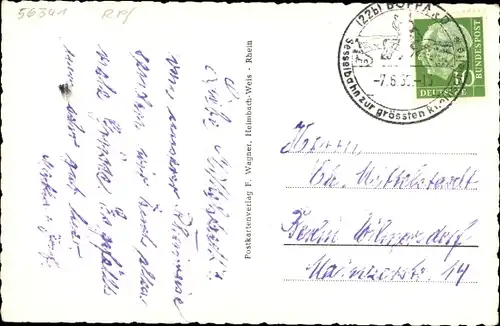 56341
(22b) BOPPARD
-7.6.5
Sesselbahn zur grössten
10
DEUTSCHE
BUNDESPOST
Postkartenverlag F. Wagner, Heimbach-Weis - Rhein
Von unserer Rheinreise
senden wir Euch allen
viele Grüße. Es gefällt
uns sehr gut hier
Herrn
Ch. Mittelstaedt
Berlin Wilmersdorf
Mainzerstr. 14